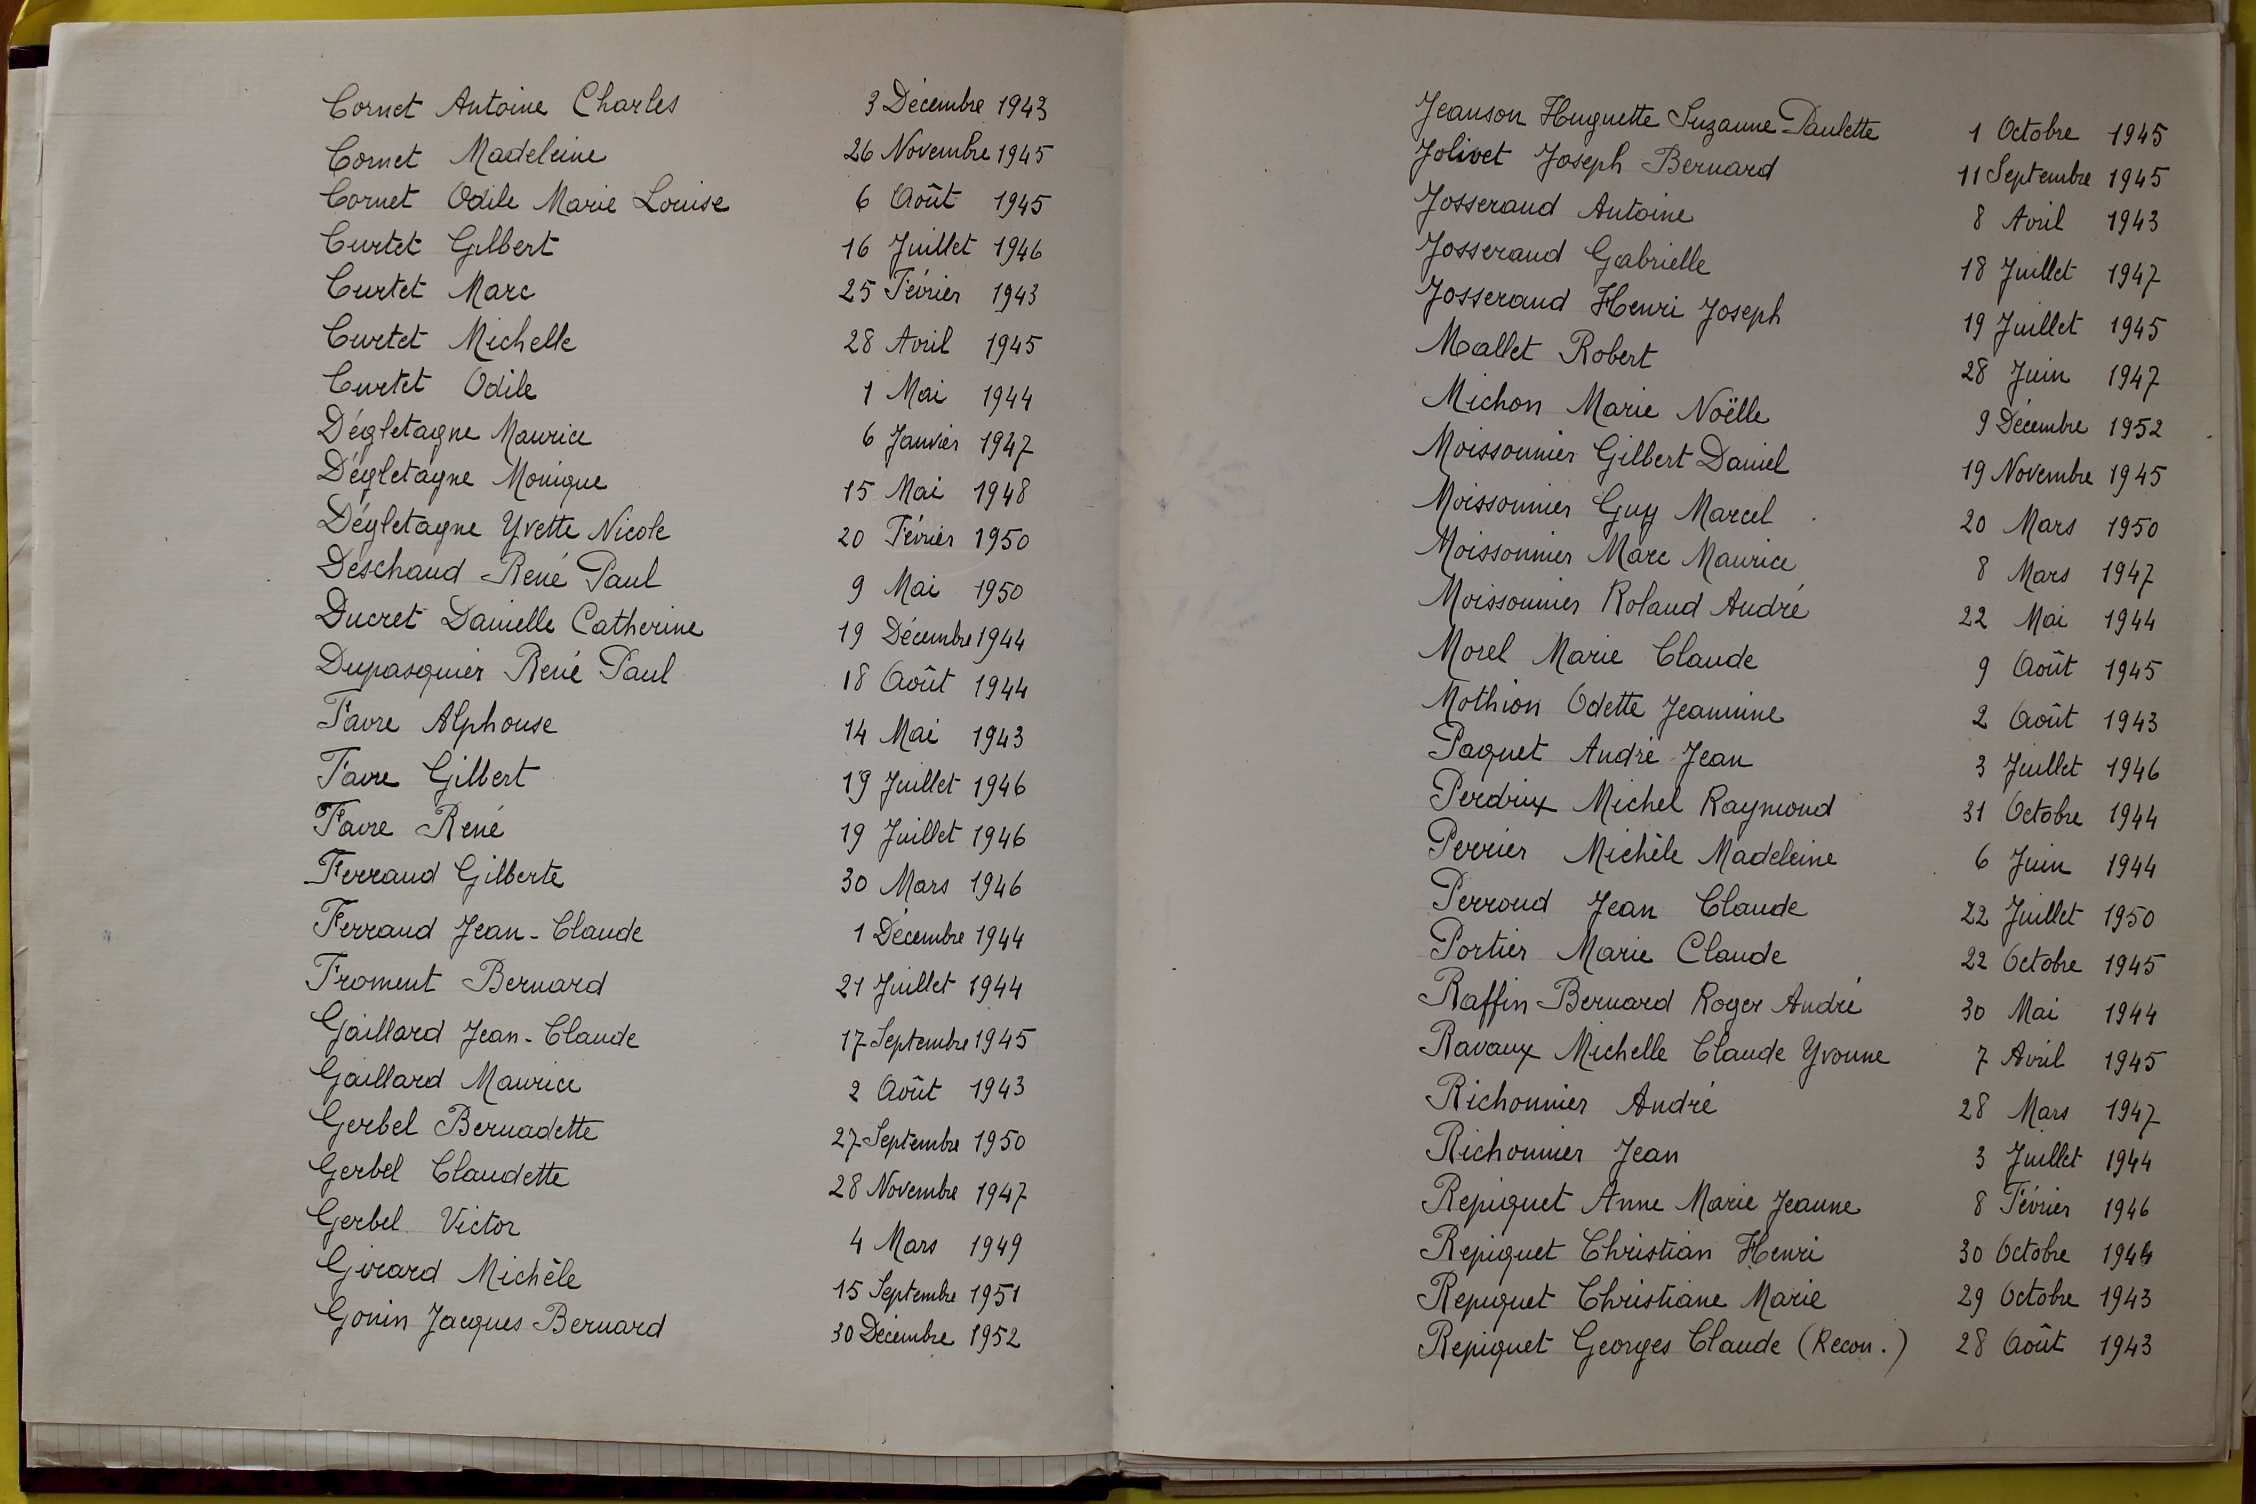 Cornet Antoine Charles 3 Décembre 1943
Cornet Madeleine 26 Novembre 1945
Cornet Odile Marie Louise 6 Août 1945
Curtet Gilbert 16 Juillet 1946
Curtet Marc 25 Février 1943
Curtet Michelle 28 Avril 1945
Curtet Odile 1 Mai 1944
Dégletagne Maurice 6 Janvier 1947
Dégletagne Monique 15 Mai 1948
Dégletagne Yvette Nicole 20 Février 1950
Déschaud René Paul 9 Mai 1950
Ducret Danielle Catherine 19 Décembre 1944
Dupasquier René Paul 18 Août 1944
Favre Alphonse 14 Mai 1943
Favre Gilbert 19 Juillet 1946
Favre René 19 Juillet 1946
Ferraud Gilberte 30 Mars 1946
Ferraud Jean-Claude 1 Décembre 1944
Froment Bernard 21 Juillet 1944
Gaillard Jean-Claude 17 Septembre 1945
Gaillard Maurice 2 Août 1943
Gerbel Bernadette 27 Septembre 1950
Gerbel Claudette 28 Novembre 1947
Gerbel Victor 4 Mars 1949
Girard Michèle 15 Septembre 1951
Gonin Jacques Bernard 30 Décembre 1952
Jeanson Huguette Suzanne Paulette 1 Octobre 1945
Jolivet Joseph Bernard 11 Septembre 1945
Josserand Antoine 8 Avril 1943
Josserand Gabrielle 18 Juillet 1947
Josserand Henri Joseph 19 Juillet 1945
Mallet Robert 28 Juin 1947
Michon Marie Noëlle 9 Décembre 1952
Moissonnier Gilbert Daniel 19 Novembre 1945
Moissonnier Guy Marcel 20 Mars 1950
Moissonnier Marc Maurice 8 Mars 1947
Moissonnier Roland André 22 Mai 1944
Morel Marie Claude 9 Août 1945
Mothion Odette Jeannine 2 Août 1943
Paquet André Jean 3 Juillet 1946
Perdrix Michel Raymond 31 Octobre 1944
Perrier Michèle Madeleine 6 Juin 1944
Perroud Jean Claude 22 Juillet 1950
Portier Marie Claude 22 Octobre 1945
Raffin Bernard Roger André 30 Mai 1944
Ravaux Michelle Claude Yvonne 7 Avril 1945
Richonnier André 28 Mars 1947
Richonnier Jean 3 Juillet 1944
Repiquet Anne Marie Jeanne 8 Février 1946
Repiquet Christian Henri 30 Octobre 1944
Repiquet Christiane Marie 29 Octobre 1943
Repiquet Georges Claude (Recon.) 28 Août 1943